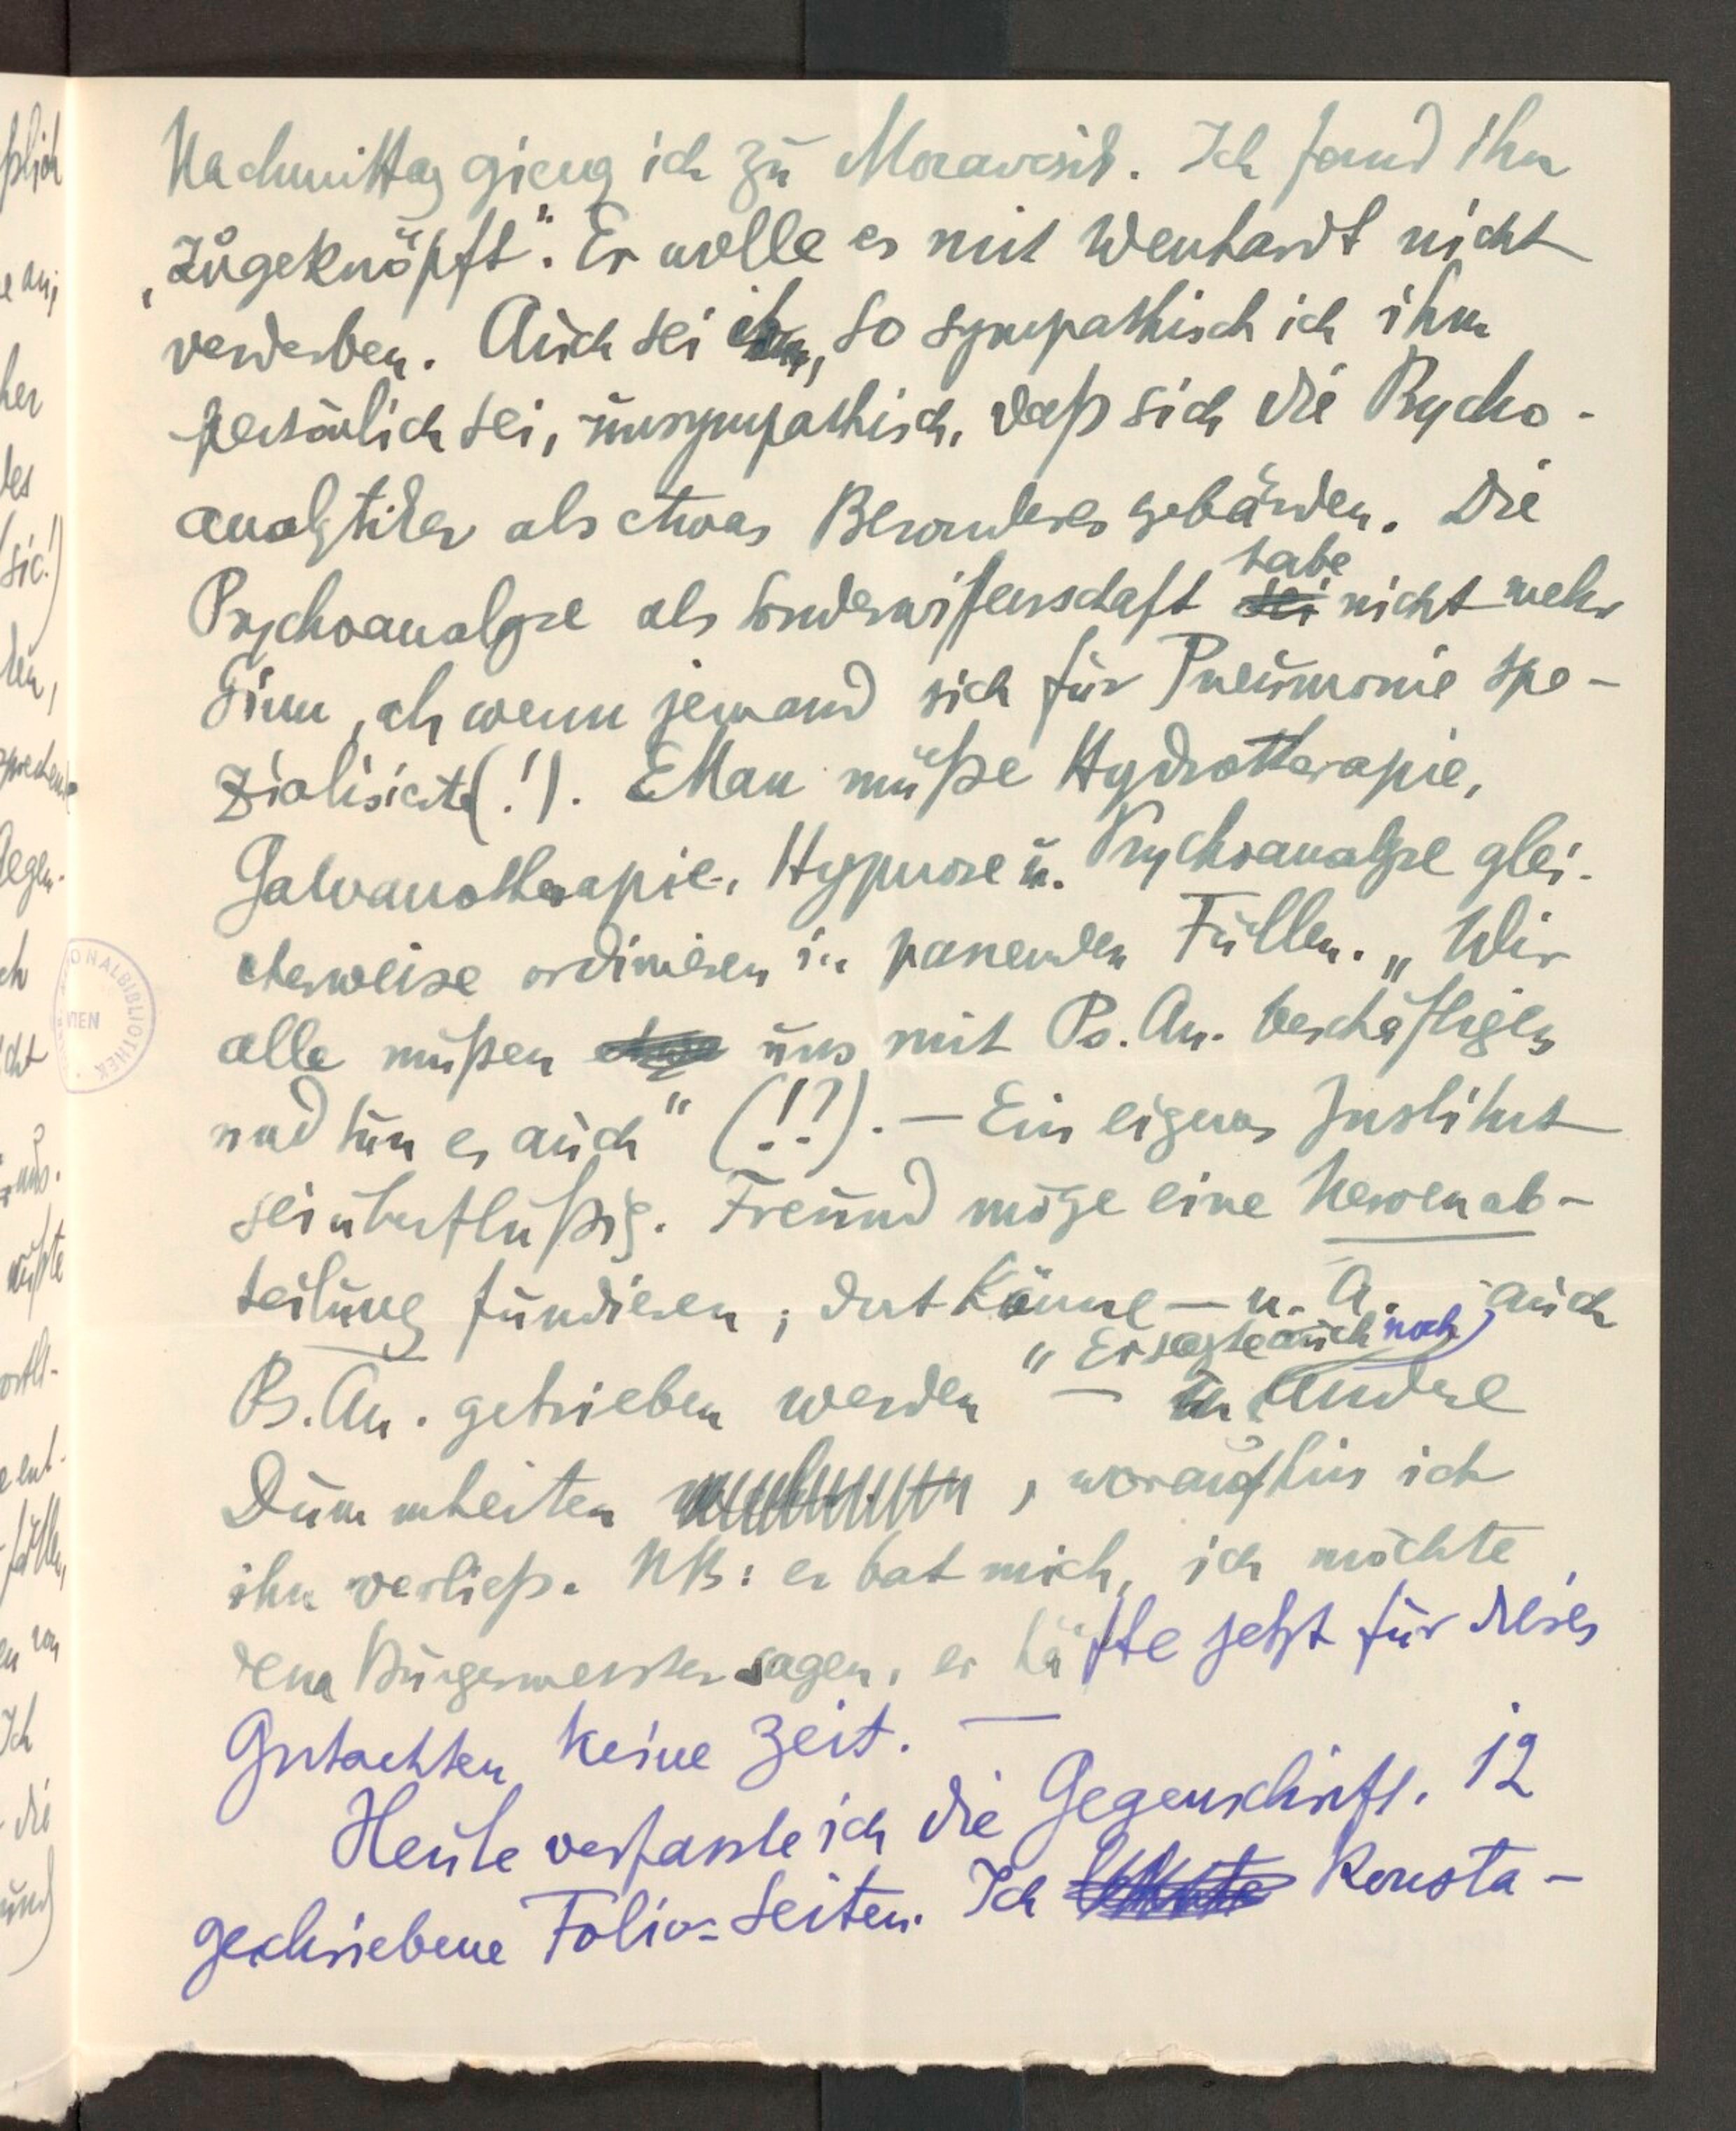 Nachmittag gieng ich zu Moravcsik. Ich fand ihn
„zugeknöpft“. Er wolle es mit Wenhardt nicht
verderben. Auch sei ihm, so sympathisch ich ihm
persönlich sei, unsympathisch, daß sich die Psycho-
analytiker als etwas Besonderes gebärden. Die
Psychoanalyse als Sonderwissenschaft habe nicht mehr
Sinn, als wenn jemand sich für Pneumonie spe-
zialisierte(!). Man müße Hydrotherapie,
Galvanotherapie, Hypnose u. Psychoanalyse glei-
cherweise ordinieren in passenden Fällen. „Wir
alle müßen uns mit Ps. An. beschäftigen
und tun es auch“ (!?). — Ein eigenes Institut
sei überflüßig. Freund möge eine Nervenab-
teilung fundieren; dort könne — u. A. auch
Ps. An. getrieben werden“ — Er sagte auch noch andere
Dummheiten, woraufhin ich
ihn verließ. NB: er bat mich, ich möchte
dem Bürgermeister sagen, er hätte jetzt für dieses
Gutachten keine Zeit. —
Heute verfasste ich die Gegenschrift. 12
geschriebene Folio-Seiten. Ich konsta-